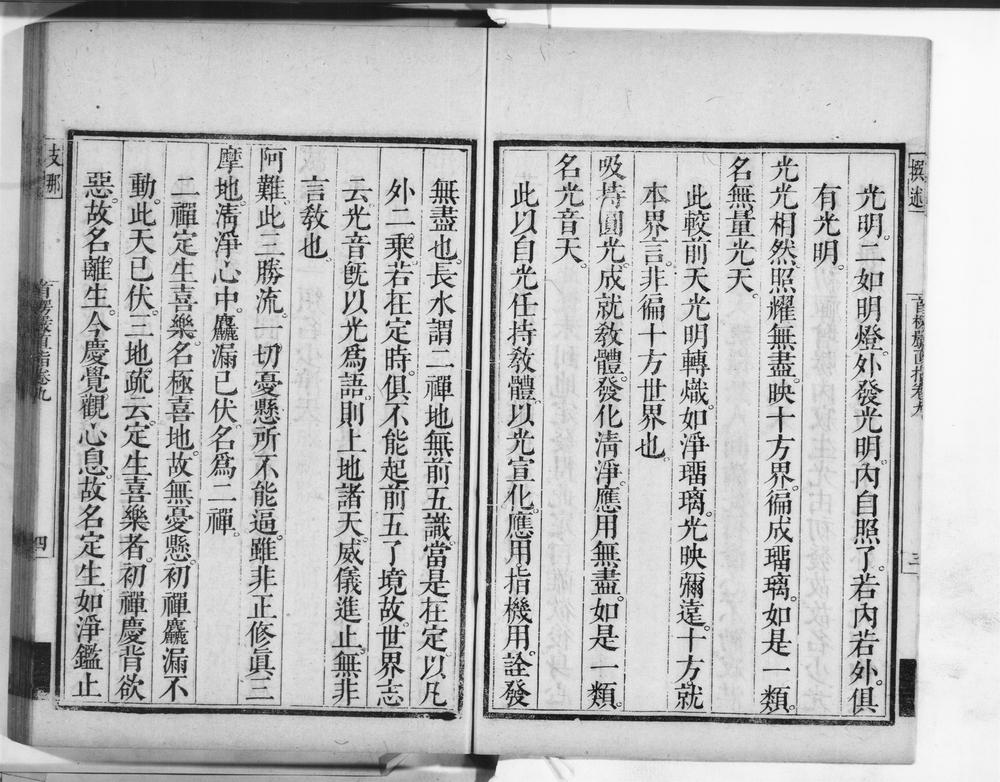 光明。二如明燈。外發光明。內自照了。若內若外。俱
有光明。
光光相然。照耀無盡。映十方界。徧成瑠璃。如是一類。
名無量光天。
此較前天光明轉熾。如淨瑠璃。光映彌遠。十方就
本界言。非徧十方世界也。
吸持圓光。成就教體。發化清淨。應用無盡。如是一類。
名光音天。
此以自光任持教體。以光宣化。應用指機用。詮發
無盡也。長水謂二禪地無前五識。當是在定。以凡
外二乘。若在定時。俱不能起前五了境故。世界志
云。光音旣以光爲語。則上地諸天。威儀進止。無非
言教也。
阿難。此三勝流。一切憂懸所不能逼。雖非正修眞三
摩地。清淨心中。麤漏已伏。名爲二禪。
二禪定生喜樂。名極喜地。故無憂懸。初禪麤漏不
動。此天已伏。三地疏云。定生喜樂者。初禪慶背欲
惡。故名離生。今慶覺觀心息。故名定生。如淨鑑止
撰述
首楞嚴直指卷九
三
支那
首楞嚴直指卷九
四